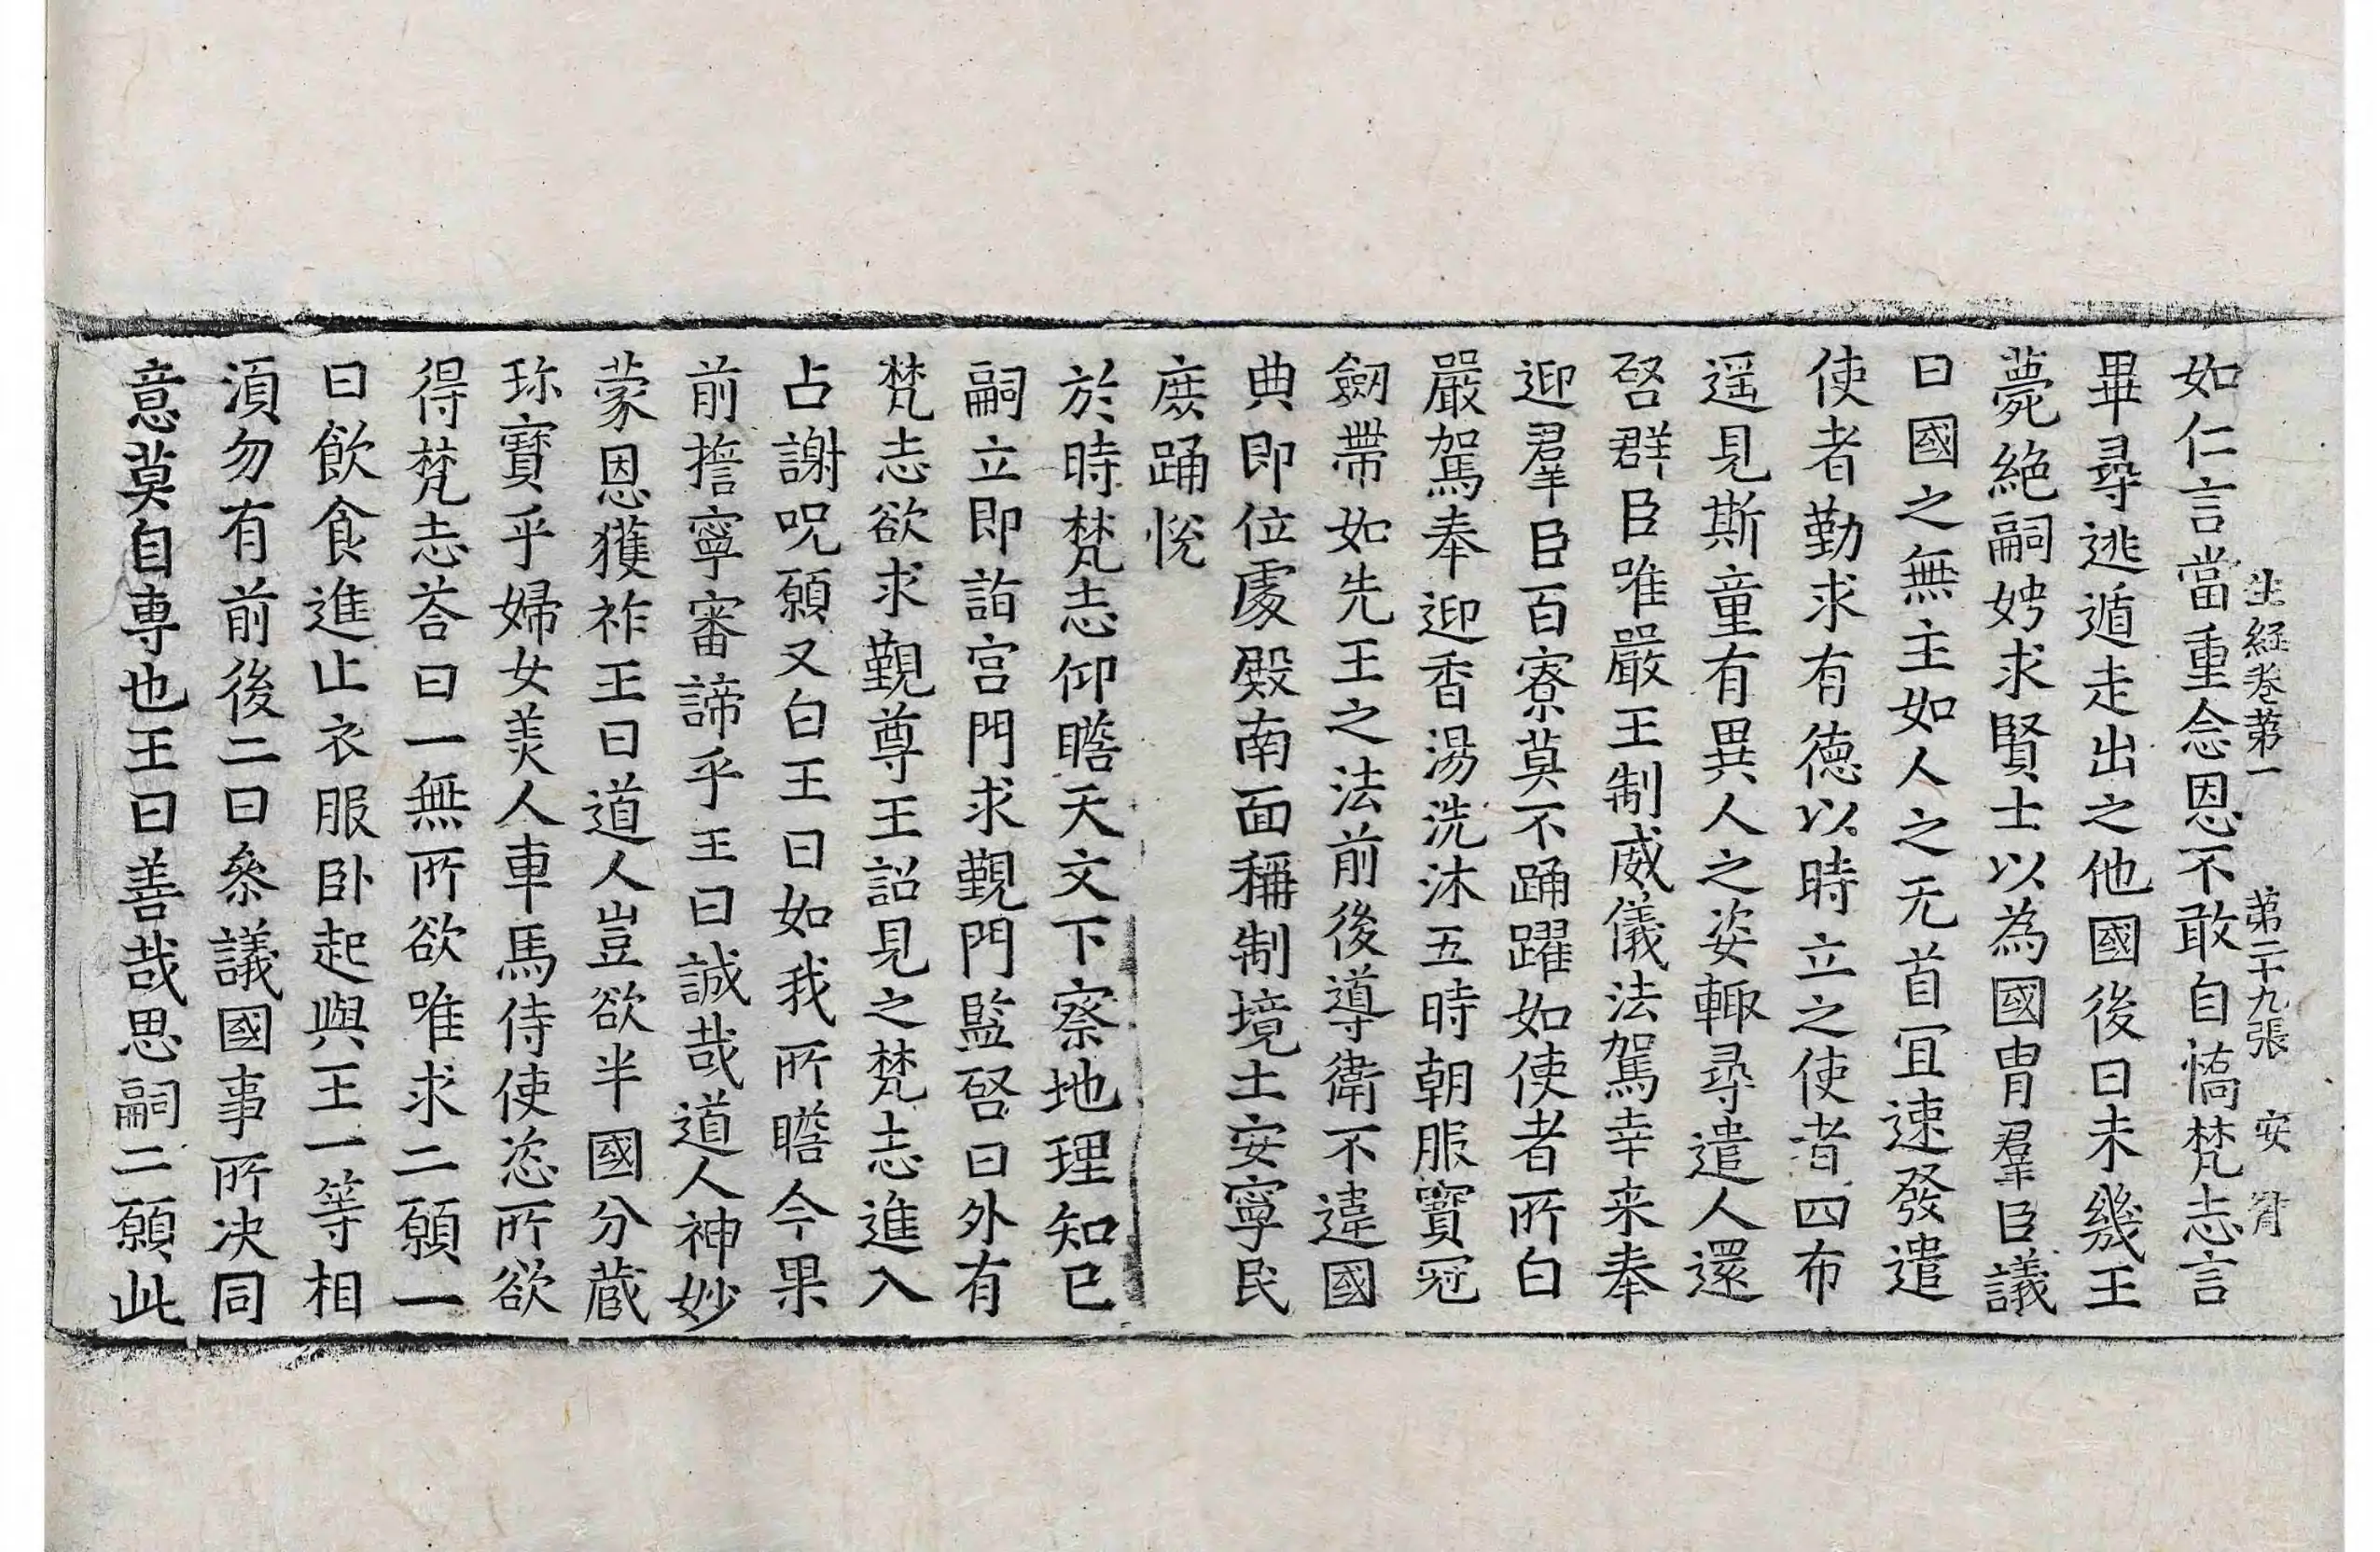 生經卷第一　第二十九張　安　骨
如仁言當重念恩不敢自憍梵志言
畢尋逃遁走出之他國後日未幾王
薨絶嗣娉求賢士以為國胄羣臣議
曰國之無主如人之无首冝速發遣
使者勤求有德以時立之使者四布
遥見斯童有異人之姿輙尋遣人還
啓群臣唯嚴王制威儀法駕幸来奉
迎羣臣百寮莫不踊躍如使者所白
嚴駕奉迎香湯洗沐五時朝服寳冠
劒帶如先王之法前後導衛不違國
典即位處殿南面稱制境土安寧民
庶踊悅
於時梵志仰瞻天文下察地理知已
嗣立即詣宫門求覲門監啓曰外有
梵志欲求覲尊王詔見之梵志進入
占謝呪願又白王曰如我所瞻今果
前擔寧審諦乎王曰誠哉道人神妙
蒙恩獲祚王曰道人豈欲半國分蔵
珎寳乎婦女羙人車馬侍使恣所欲
得梵志荅曰一無所欲唯求二願一
曰飲食進止衣服卧起與王一等相
湏勿有前後二曰叅議國事所决同
意莫自専也王曰善哉思嗣二願此